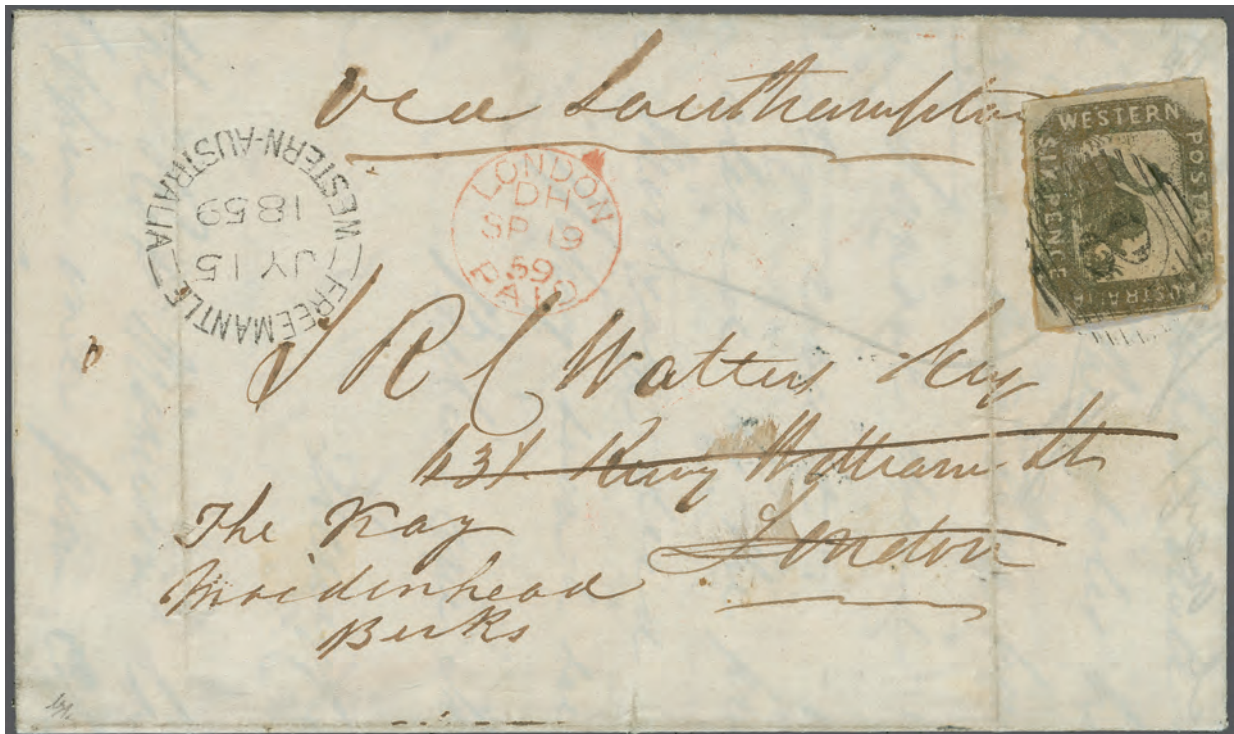 via Southampton
WESTERN
POSTAGE
AUSTRALIA
SIX PENCE
FREEMANTLE
WESTERN-AUSTRALIA
JY 15
1859
LONDON
DH
SP 19
59
PAID
J R C Watters Esq
King William St
London
The
Maidenhead
Berks